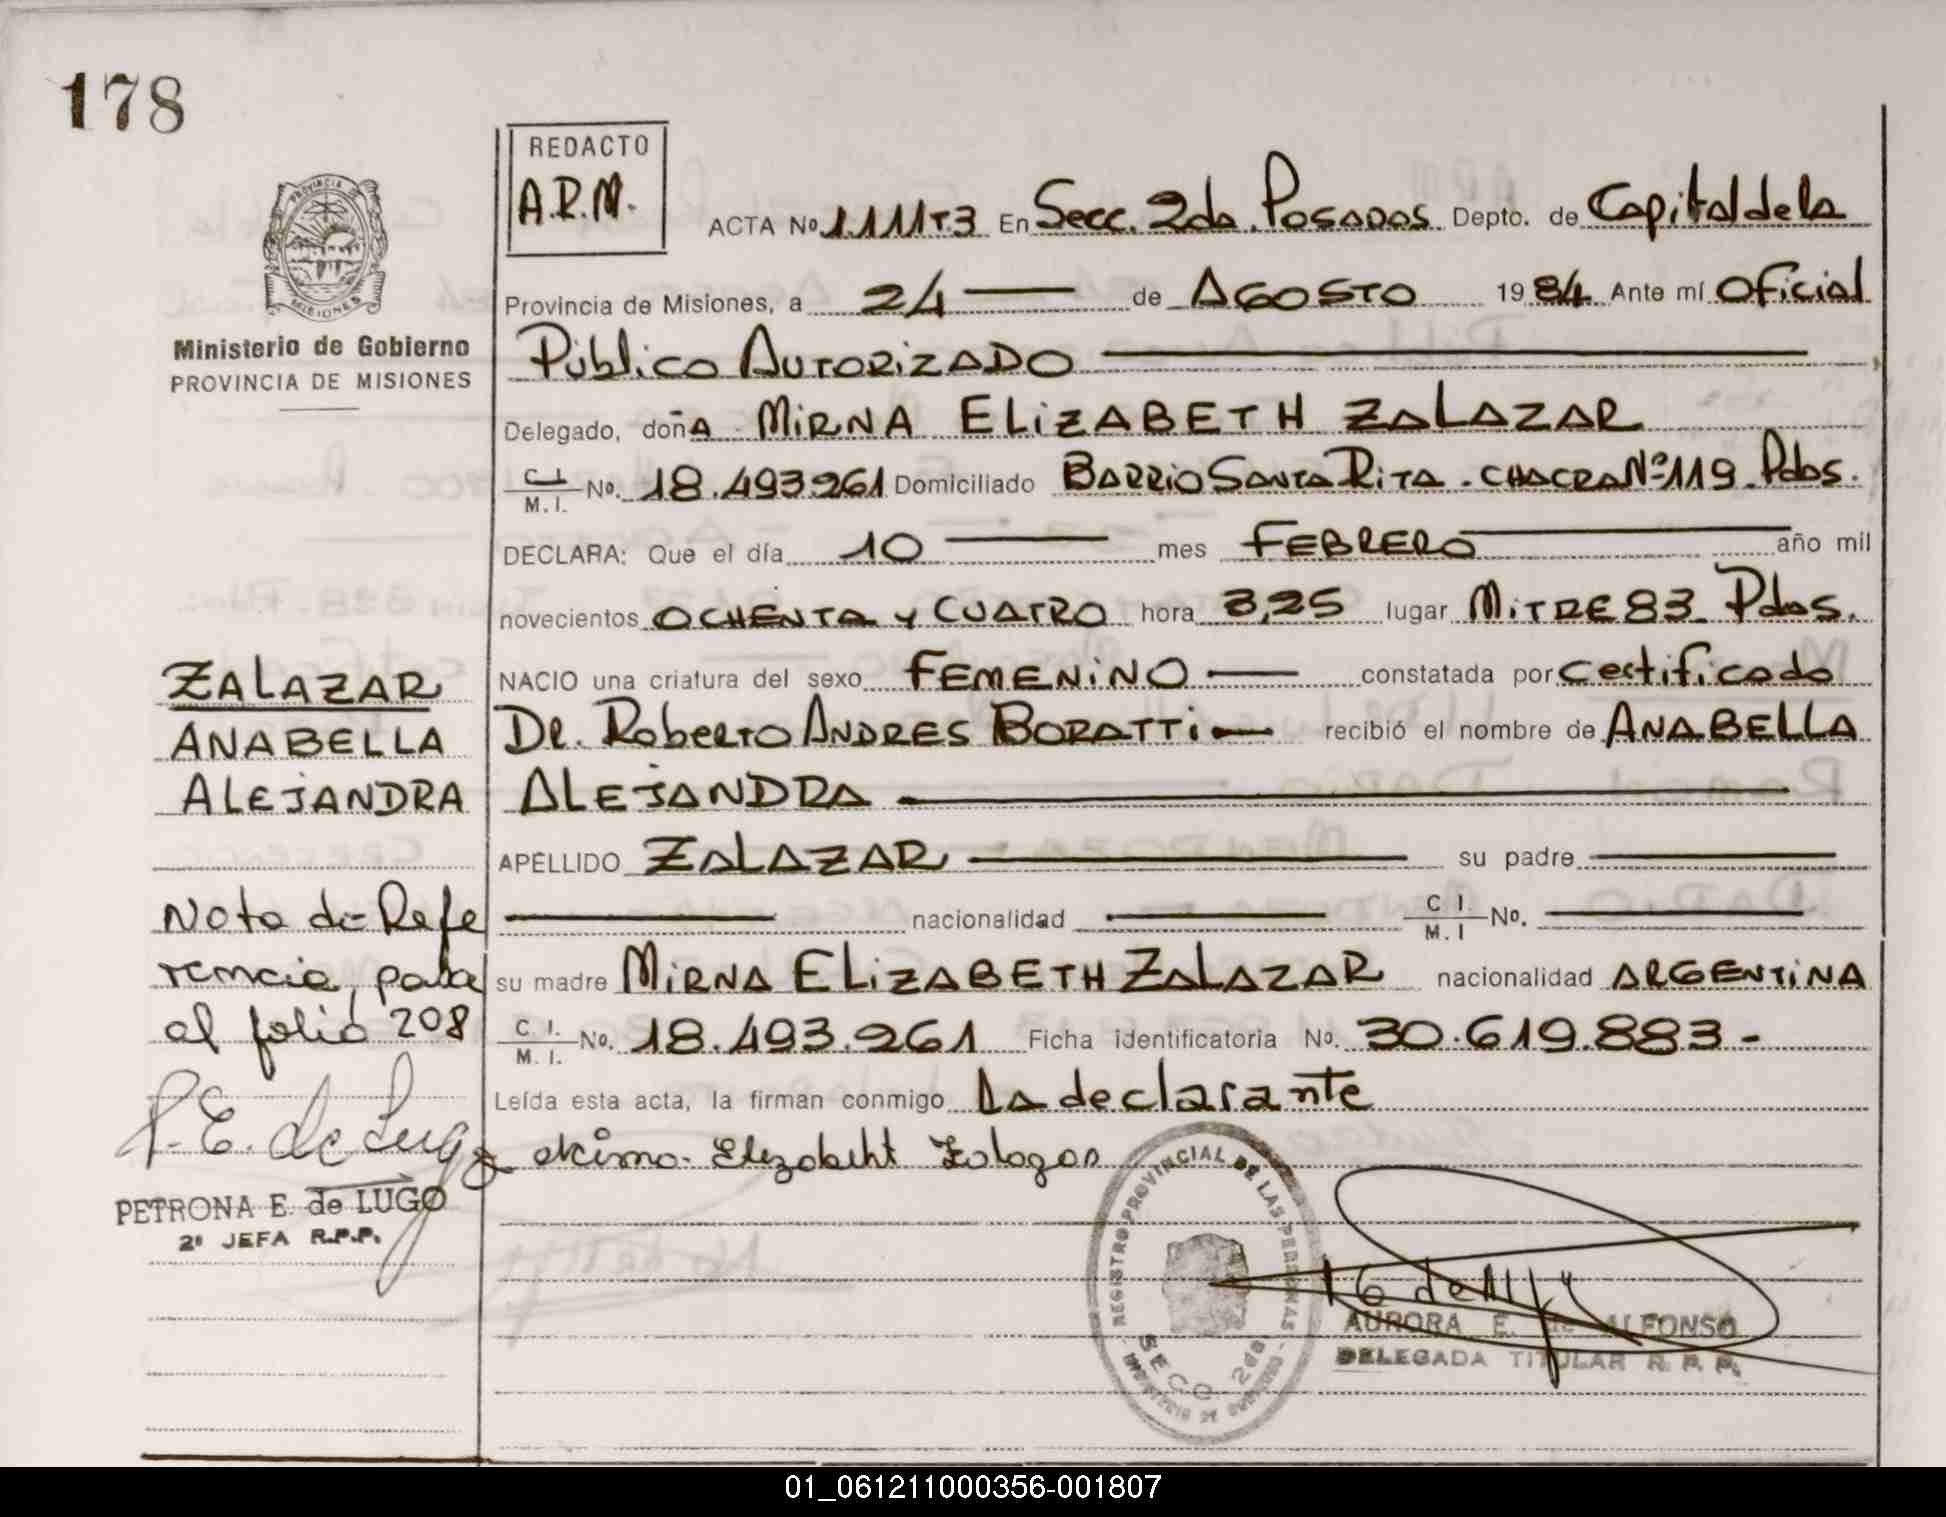 178
REDACTO
A.R.M.
PROVINCIA DE
MISIONES
Ministerio de Gobierno
PROVINCIA DE MISIONES
ACTA No 1.111T.3 En Secc. 2da. Posadas Depto. de Capital de la
Provincia de Misiones, a 24 — de AGOSTO 1984 Ante mí Oficial
Público AUTORIZADO
Delegado, doñA MIRNA ELIZABETH ZALAZAR
C.I. M.I. No. 18.493.261 Domiciliado BARRIO SANTA RITA. CHACRA Nº 119. Pdas.
DECLARA: Que el día 10 — mes FEBRERO — año mil
novecientos OCHENTA y CUATRO hora 3,25 lugar MITRE 83. Pdas.
NACIO una criatura del sexo FEMENINO — constatada por Certificado
Dr. Roberto ANDRES BORATTI — recibió el nombre de ANABELLA
ALEJANDRA —
APELLIDO ZALAZAR — su padre —
— nacionalidad — C I. M. I No. —
su madre MIRNA ELIZABETH ZALAZAR nacionalidad ARGENTINA
C. I. M. I. No. 18.493.261 Ficha identificatoria No. 30.619.883 -
Leída esta acta, la firman conmigo La declarante
ZALAZAR
ANABELLA
ALEJANDRA
Nota de Refe
rencia, pasa
al folio 208
P. E. de Lugo
PETRONA E. de LUGO
2ª JEFA R.P.P.
REGISTRO PROVINCIAL DE LAS PERSONAS
SECC. 2da
MINISTERIO DE GOBIERNO
AURORA E. ALFONSO
DELEGADA TITULAR R. P. P.
01_061211000356-001807